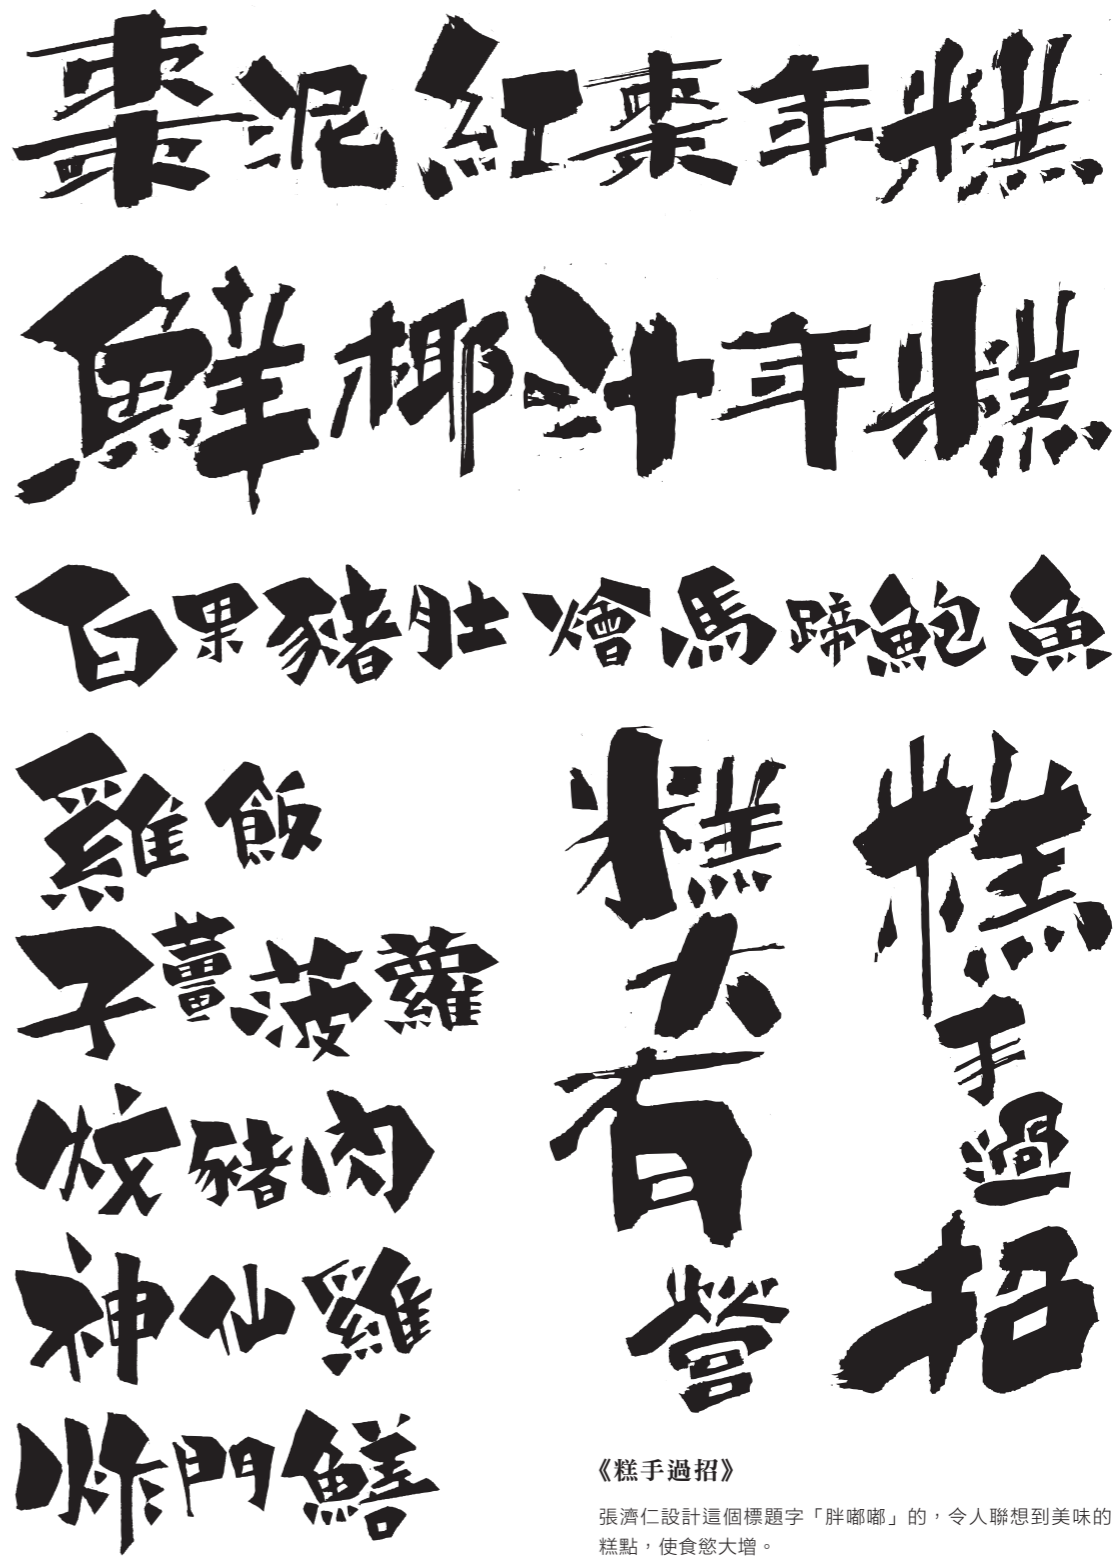 棗泥紅棗年糕
鮮椰汁年糕
百果豬肚燴馬蹄鮑魚
雞飯
子薑菠蘿
炆豬肉
神仙雞
炸門鱔
糕手過招
糕大有營
《糕手過招》
張濟仁設計這個標題字「胖嘟嘟」的，令人聯想到美味的
糕點，使食慾大增。